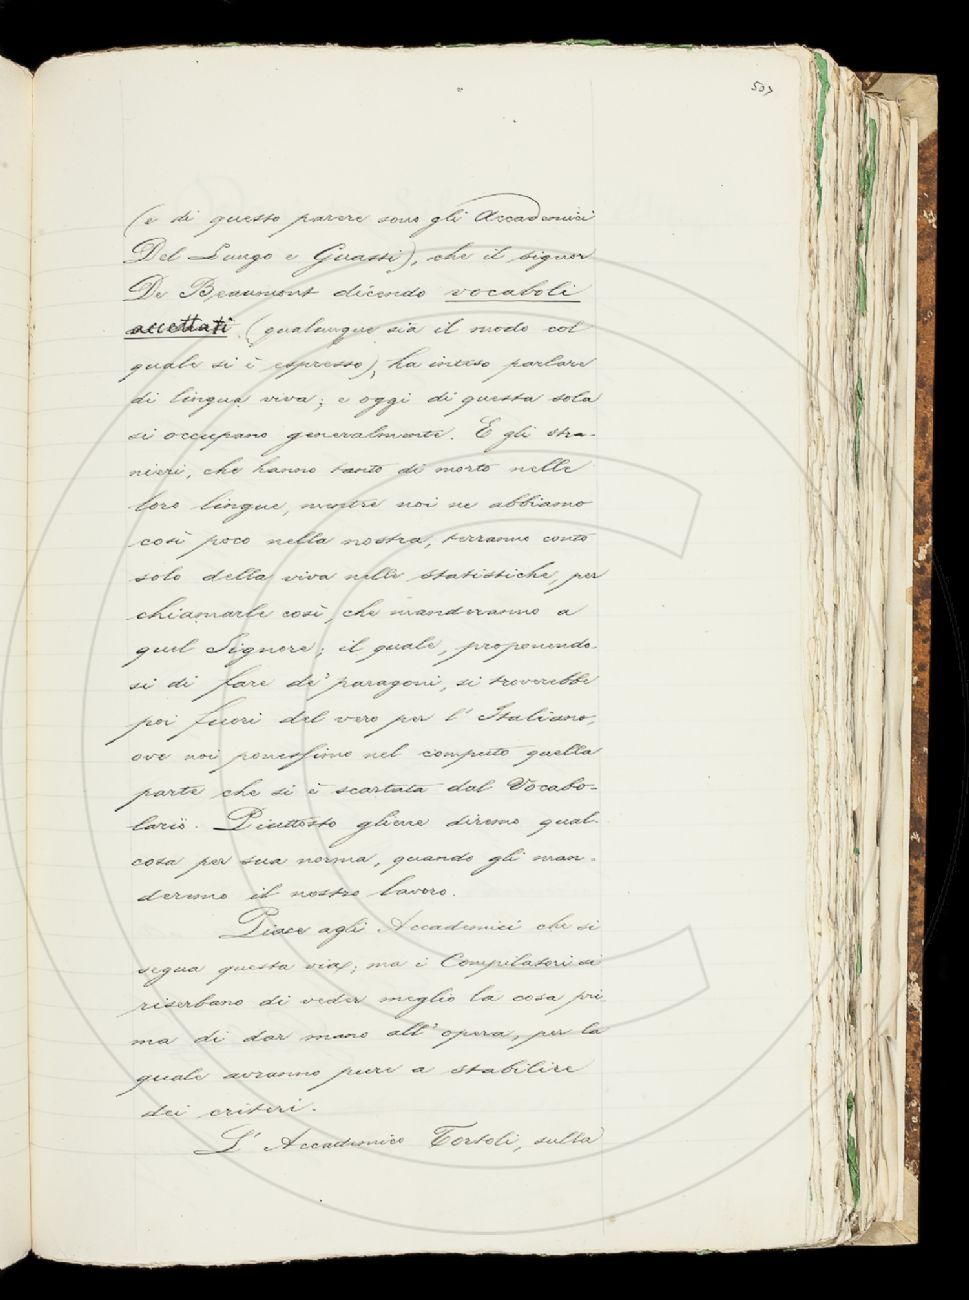 507
(e di questo parere sono gli Accademici
Del Lungo e Guasti), che il signor
De Beaumont dicendo vocaboli
accettati (qualunque sia il modo col
quale si è espresso), ha inteso parlare
di lingua viva; e oggi di questa sola
si occupano generalmente. E gli stra-
nieri, che hanno tanto di morto nelle
loro lingue, mentre noi ne abbiamo
così poco nella nostra, terranno conto
solo della viva nelle statistiche, per
chiamarle così, che manderanno a
quel Signore; il quale, proponendo
si di fare de' paragoni, si troverebbe
poi fuori del vero per l' Italiano,
ove noi ponessimo nel computo quella
parte che si è scartata dal Vocabo-
lario. Piuttosto gliene diremo qual-
cosa per sua norma, quando gli man-
deremo il nostro lavoro.
Piace agli Accademici che si
segua questa via; ma i Compilatori si
riserbano di veder meglio la cosa pri
ma di dar mano all' opera, per la
quale avranno pure a stabilire
dei criteri.
L' Accademico Tortoli, sulla